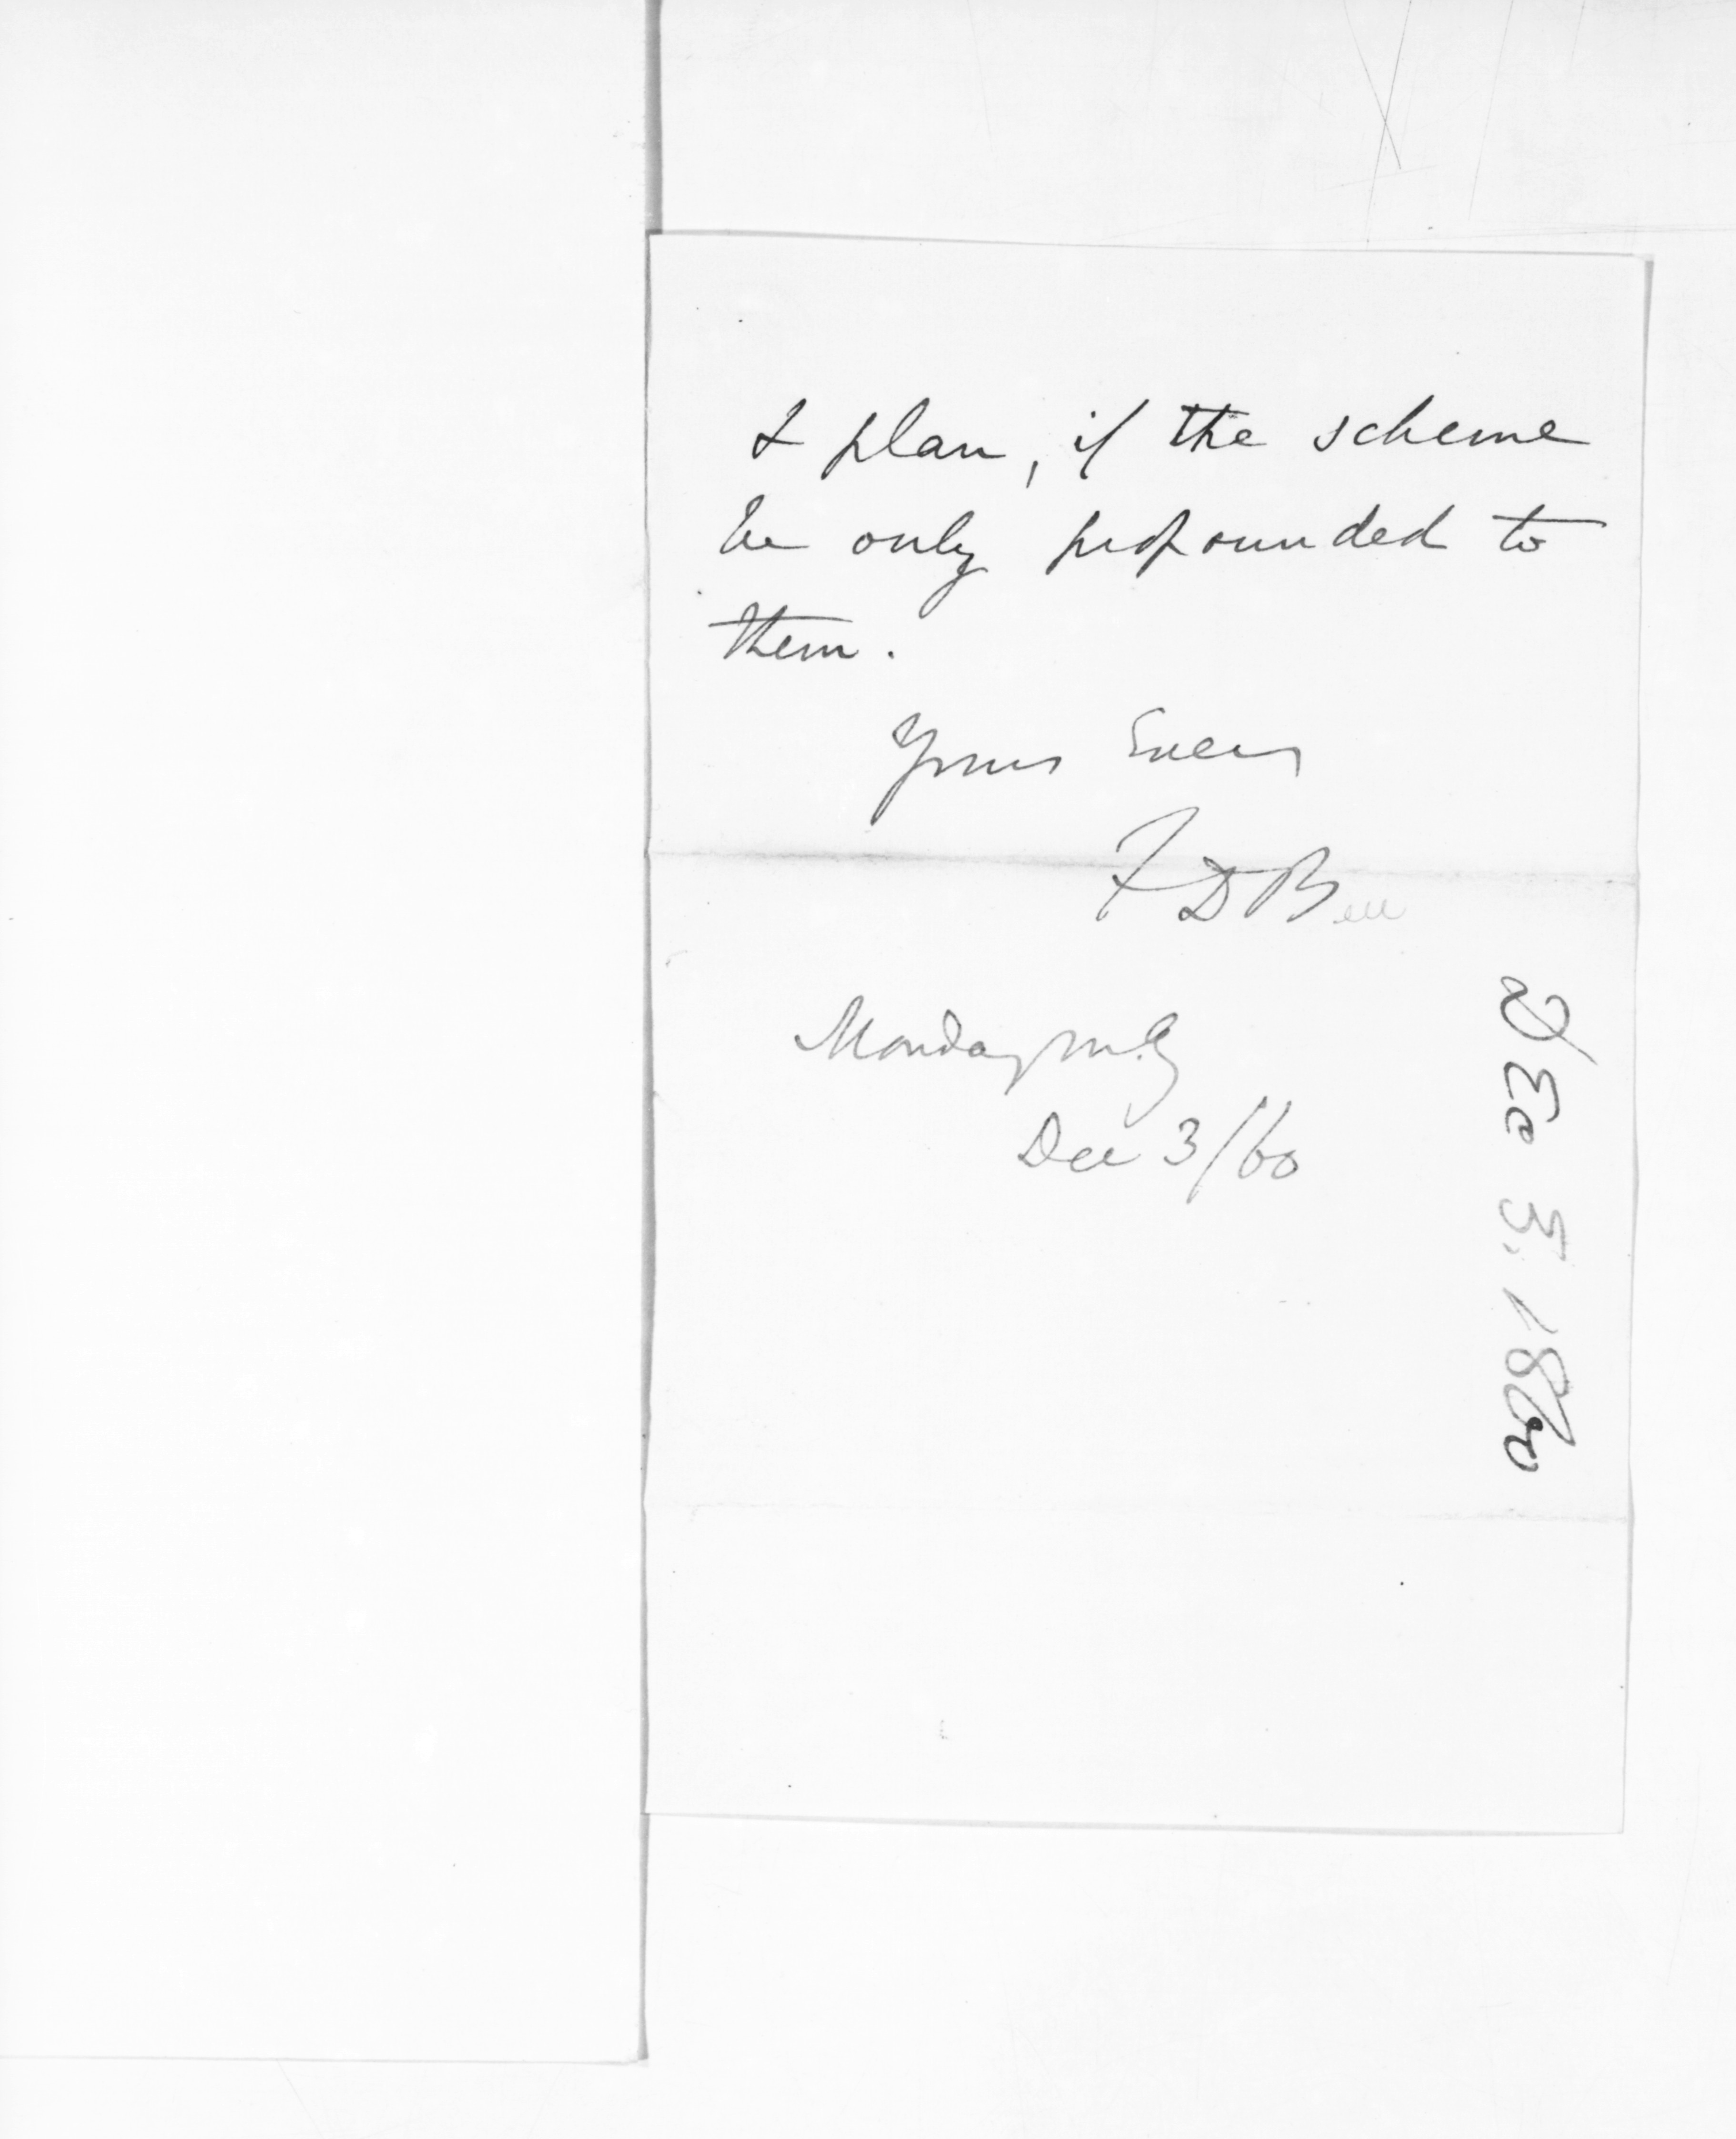 & plan, if the scheme
be only propounded to
them.
Yours Ever
F D Bell
Monday mg
Dec 3/60
Dec 3. 1860